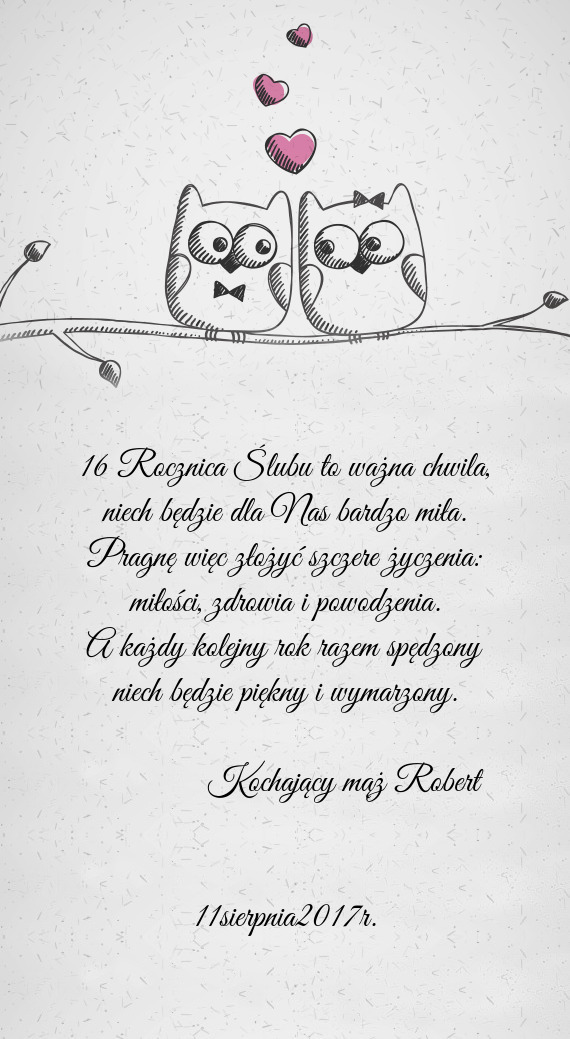 16 Rocznica Ślubu to ważna chwila,
niech będzie dla Nas bardzo miła.
Pragnę więc złożyć szczere życzenia:
miłości, zdrowia i powodzenia.
A każdy kolejny rok razem spędzony
niech będzie piękny i wymarzony.
Kochający mąż Robert
11sierpnia2017r.